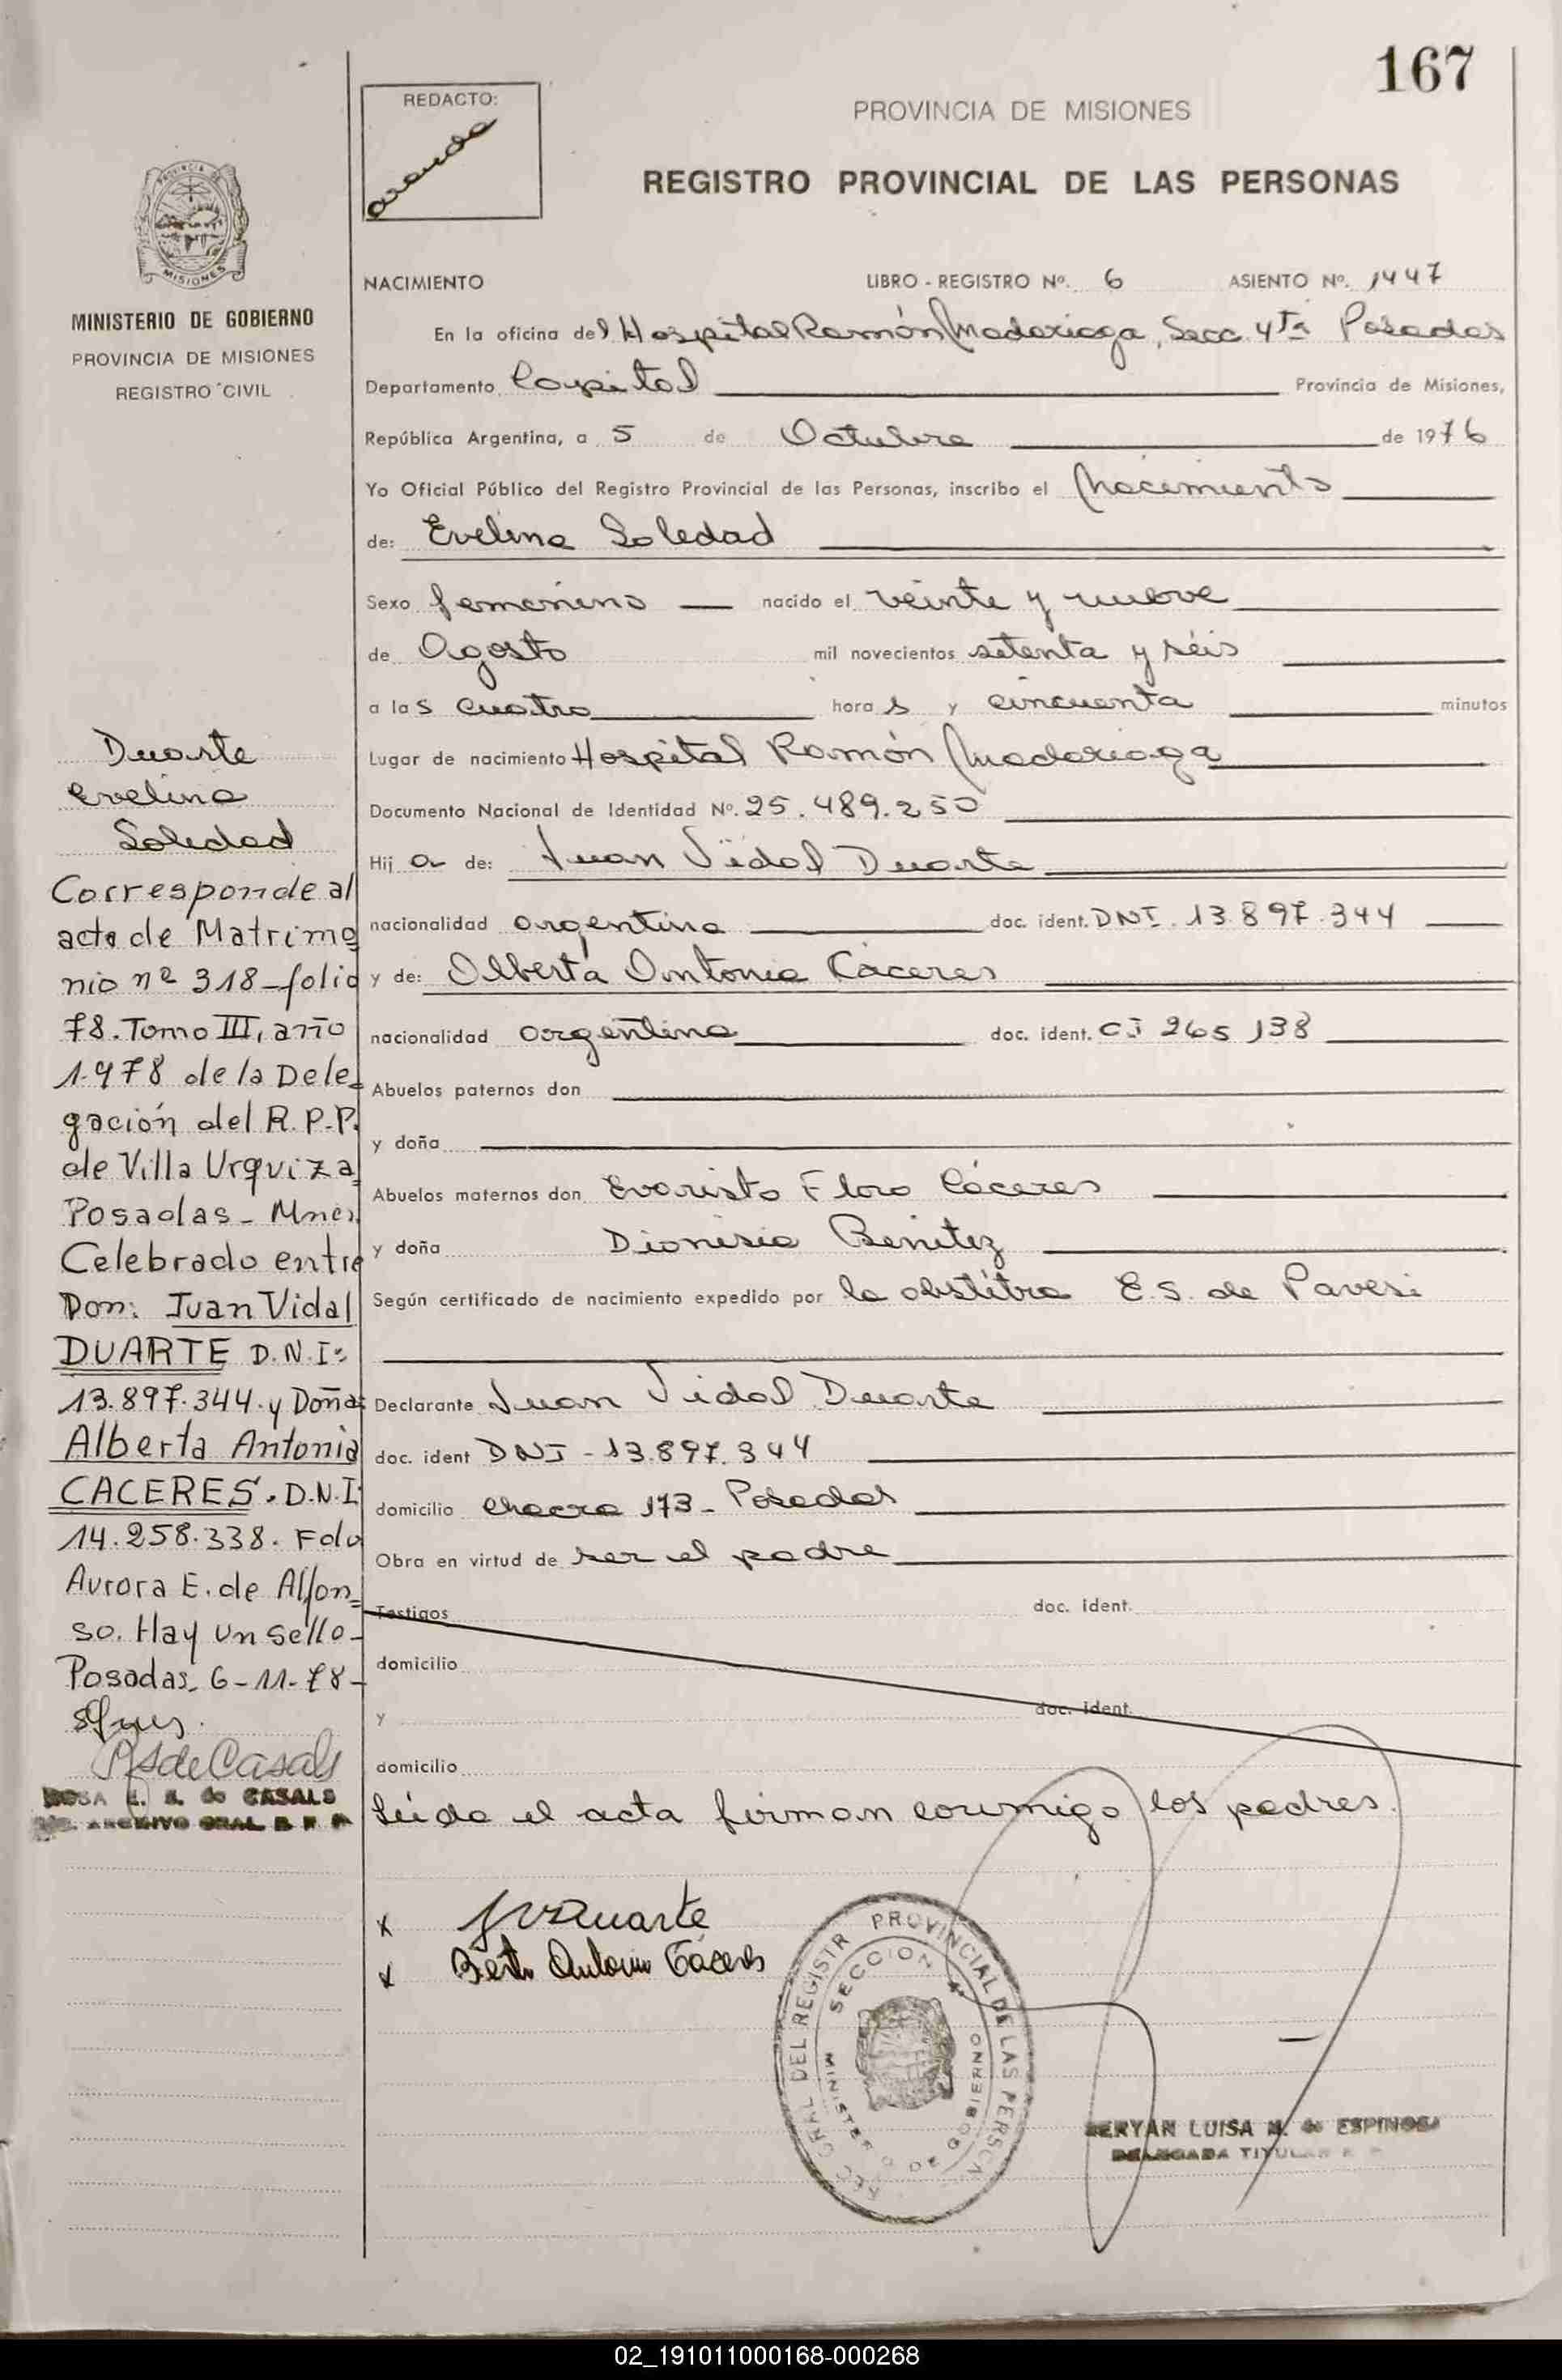 167
REDACTO:
PROVINCIA DE MISIONES
REGISTRO PROVINCIAL DE LAS PERSONAS
PROVINCIA DE
MISIONES
MINISTERIO DE GOBIERNO
PROVINCIA DE MISIONES
REGISTRO CIVIL
NACIMIENTO LIBRO - REGISTRO Nº. 6 ASIENTO Nº. 1447
En la oficina del Hospital Ramón Madariaga, Secc. 4ta Posadas
Departamento Capital Provincia de Misiones,
República Argentina, a 5 de Octubre de 1976
Yo Oficial Público del Registro Provincial de las Personas, inscribo el Nacimiento
de: Evelina Soledad
Sexo femenino nacido el veinte y nueve
de Agosto mil novecientos setenta y séis
a las cuatro horas y cincuenta minutos
Lugar de nacimiento Hospital Ramón Madariaga
Documento Nacional de Identidad Nº. 25.489.250
Hija de: Juan Vidal Duarte
nacionalidad argentina doc. ident. DNI. 13.897.344
y de: Alberta Antonia Cáceres
nacionalidad argentina doc. ident. CI 265138
Abuelos paternos don
y doña
Abuelos maternos don Evaristo Floro Cáceres
y doña Dionisia Benitez
Según certificado de nacimiento expedido por la obstétra E.S. de Pavesi
Declarante Juan Vidal Duarte
doc. ident DNI - 13.897.344
domicilio chacra 173 - Posadas
Obra en virtud de ser el padre
Testigos doc. ident.
domicilio
y doc. ident.
domicilio
Leída el acta firman conmigo los padres.
Duarte
Evelina
Soledad
Corresponde al
acta de Matrimo
nio nº 318-folio
78. Tomo III, año
1.978 de la Dele=
gación del R.P.P.
de Villa Urquiza
Posadas - Mnes.
Celebrado entre
Don: Juan Vidal
DUARTE D.N.I:
13.897.344. y Doña:
Alberta Antonia
CACERES. D.N.I
14.258.338. Fdo
Aurora E. de Alfon=
so. Hay un sello-
Posadas, 6-11-78-
RSdeCasals
ROSA E. S. de CASALS
ARCHIVO GRAL. R P P
x JVDuarte
x Berta Antonia Cáceres
GRAL DEL REGISTR PROVINCIAL DE LAS PERSONAS
SECCION 4
MINISTERIO DE GOBIERNO
SERYAN LUISA M. de ESPINOSA
DELEGADA TITULAR
02_191011000168-000268